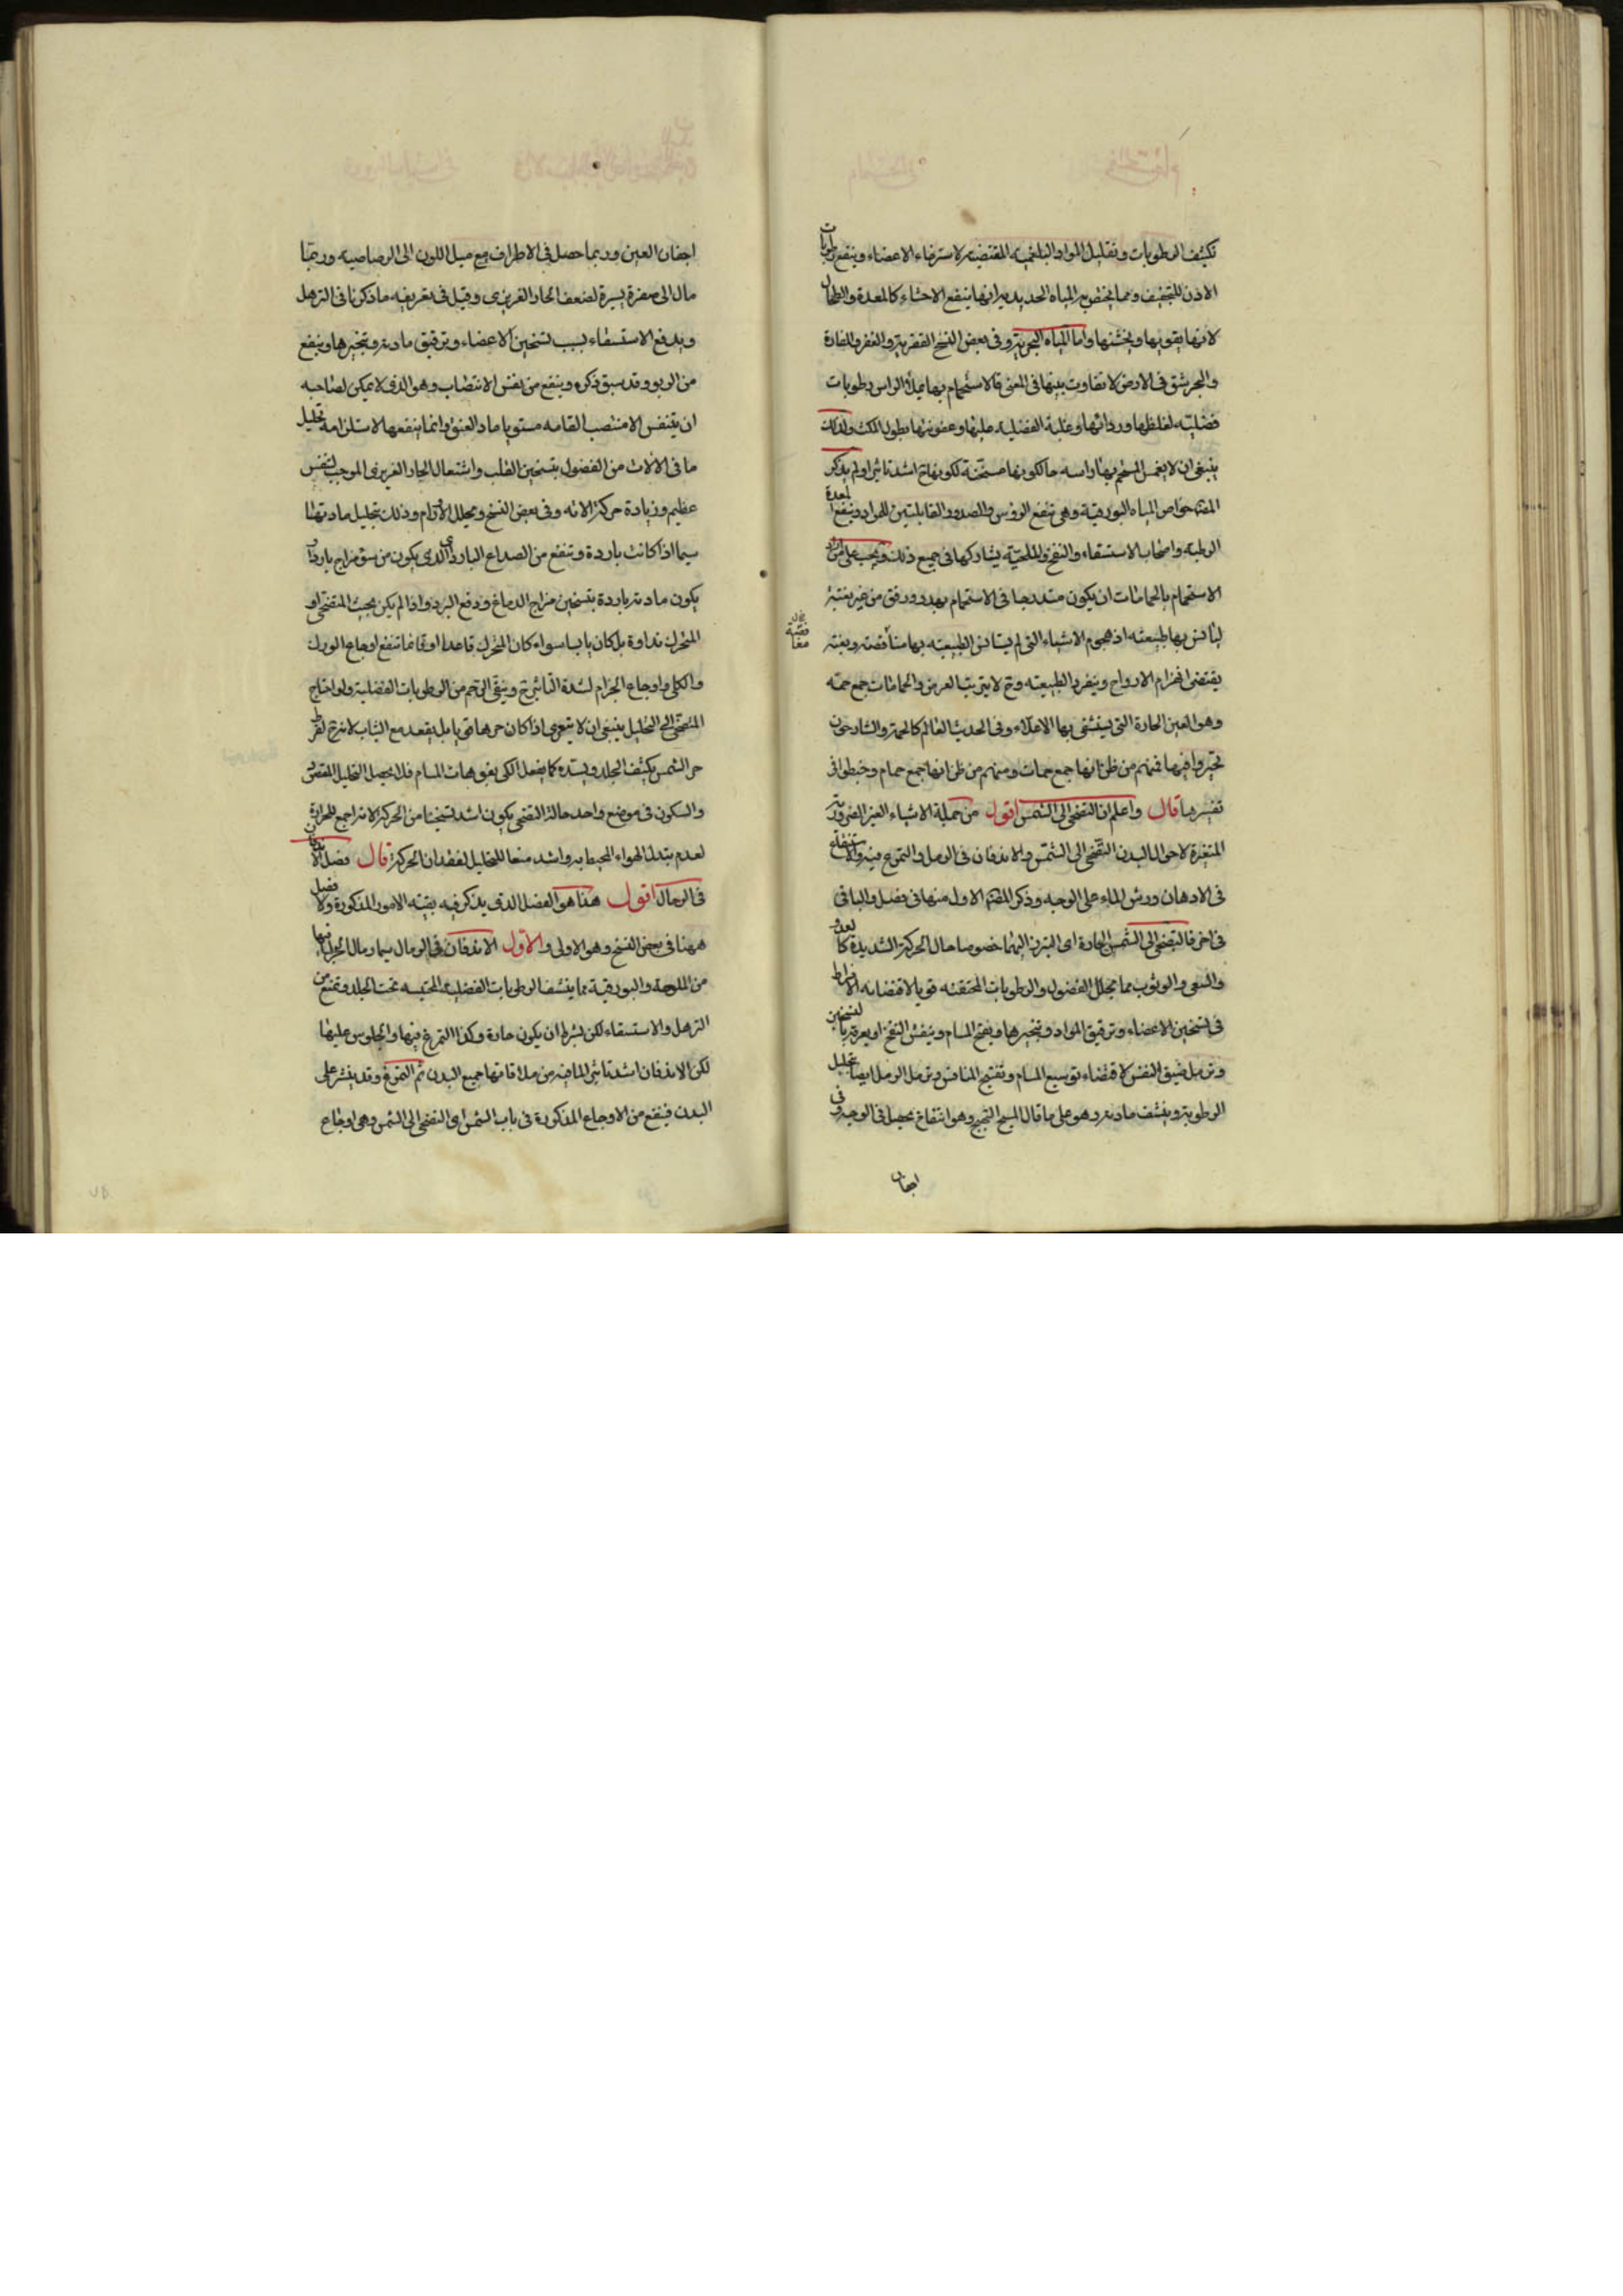 تكثيف الرطوبات وتقليل المواد البلغمية المقتضية لاسترخاء الاعضاء وينفع رطوبات
الاذن للتجفيف ومما يختص به المياه الحديدية انها ينفع الاحشاء كالمعدة والطحال
لانها يقويها ويخشنها واما المياه البحرية وفى بعض النسخ القفرية والقفر والقارة
والحجر شق فى الارض لا تفاوت بينها فى المعنى فالاستحمام بها يملأ الراس رطوبات
فضلية لغلظها ورداءتها وغلبة الفضلية عليها وعفونتها بطول المكث ولذلك
ينبغى ان لا يغمس المستحم بها راسه حالكونها مسخنة لكونها ح اشد تاثيرا ولم يذكر
المصنف خواص المياه البورقية وهى تنفع الرؤس والصدور القابلتين للمواد وينفع المعدة
الرطبة واصحاب الاستسقاء والنفخ والملحية يشاركها فى جميع ذلك ويجب على من اراد
الاستحمام بالحمامات ان يكون متدرجا فى الاستحمام بهدو ورفق من غير بغتة
ليأنس بها طبيعته اذ هجوم الاشياء التى لم يستانس الطبيعة بها مناقضة وبغتة
يقتضى انهزام الارواح وينفر الطبيعة وح لا يترتب الغرض والحمامات جمع حمة
وهو العين الحارة التى يستشفى بها الاعلاء وفى الحديث العالم كالحمة والشارحون
تحيروا فيها فمنهم من ظن انها جمع حمات ومنهم من ظن انها جمع حمام وخبطوا فى
تفسيرها قال واعلم ان التضحى الى الشمس اقول من جملة الاشياء الغير الضرورية
المتغيرة لاحوال البدن التضحى الى الشمس والاندفان فى الرمل والتمرغ فيه والاستنقاع
فى الادهان ورش الماء على الوجه وذكر المصنف الاول منها فى فصل والباقى
فى اخر فالتضحى الى الشمس الحارة اى البروز اليها خصوصا حال الحركة الشديدة كالعدو
والسعى والوثوب مما يحلل الفضول والرطوبات المحتقنة قويا لاقتضائه الافراط
فى تسخين الاعضاء وترقيق المواد وتبخيرها ويفتح المسام وينفش النفخ او يعرق بالتسخين
ويزيل ضيق النفس لاقتضاء توسيع المسام وتفتيح المنافس ويزيل الرمل ايضا بتحليل
الرطوبة وينشف مادته وهو على ما قال المسيح التهيج وهو انتفاخ يحصل فى الوجه وفى
اجفان
اجفان العين وربما حصل فى الاطراف مع ميل اللون الى الرصاصية وربما
مال الى صفرة يسيرة لضعف الحار الغريزى وقيل فى تعريفه ما ذكرنا فى الترهل
ويدفع الاستسقاء بسبب تسخين الاعضاء وترقيق مادته وتبخيرها وينفع
من الربو وقد سبق ذكره وينفع من نفس الانتصاب وهو الذى لا يمكن لصاحبه
ان يتنفس الا منتصب القامة مستويا ماد العنق وانما ينفعها لاستلزامه تحليل
ما فى الآلات من الفضول بتسخين القلب واشتعال الحار الغريزى الموجب لتنفس
عظيم وزيادة حركة الاته وفى بعض النسخ ويحلل الاورام وذلك بتحليل مادتها
سيما اذا كانت باردة وتنفع من الصداع البارد اى الذى يكون من سوء مزاج بارد او
يكون مادته باردة بتسخين مزاج الدماغ ودفع البرد واذا لم يكن بحيث المتضحى او
المتحرك نداوة بل كان يابسا سواء كان المتحرك قاعدا او قائما تنفع اوجاع الورك
والكلى واوجاع الجذام لشدة التاثير ح وينقى الرحم من الرطوبات الفضلية ولو احتاج
المتضحى الى التحليل ينبغى ان لا يتعرى اذا كان حرها قويا بل يقعد مع الثياب لانه ح لفرط
حر الشمس يكثف الجلد ويسده كما يفعل الكى بفوهات المسام فلا يحصل التحليل المقصود
والسكون فى موضع واحد حالة التضحى يكون اشد تسخينا من الحركة لانه اجمع للحرارة
لعدم تبدل الهواء المحيط به واشد منعا للتحليل لفقدان الحركة قال فصل الاندفان
فى الرمال اقول هذا هو الفصل الذى يذكر فيه بقية الامور المذكورة ولا فصل
ههنا فى بعض النسخ وهو الاولى والاول الاندفان فى الرمال سيما رمال البحر لما فيها
من الملوحة والبورقية مما ينشف الرطوبات الفضلية المحتبسة تحت الجلد وتمنع من
الترهل والاستسقاء لكن بشرط ان يكون حارة وكذا التمرغ فيها والجلوس عليها
لكن الاندفان اشد تاثيرا لما فيه من ملاقاتها جميع البدن ثم التمرغ وقد ينثر على
البدن فينفع من الاوجاع المذكورة فى باب الشمس اى التضحى الى الشمس وهى اوجاع